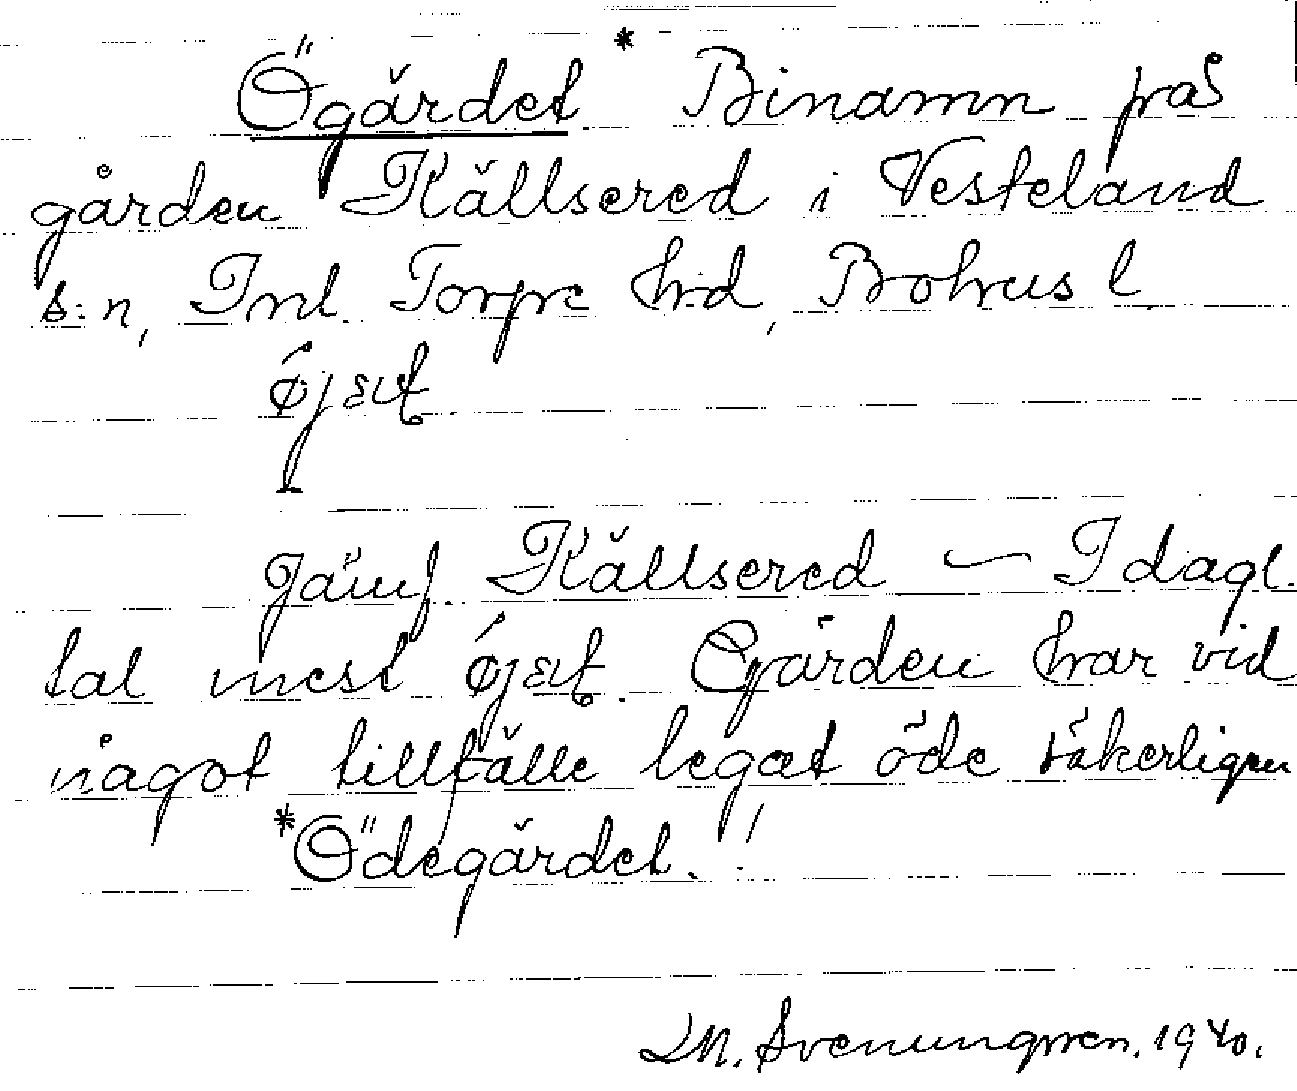 Ögärdet * Binamn på
gården Källsered i Vesteland
s:n, Inl. Torpe hrd, Bohus l
Jämf. Källsered — I dagl.
tal mest Gården har vid
något tillfälle legat öde säkerligen
*Ödegärdet. !
J.M. Svenungsson. 1940.